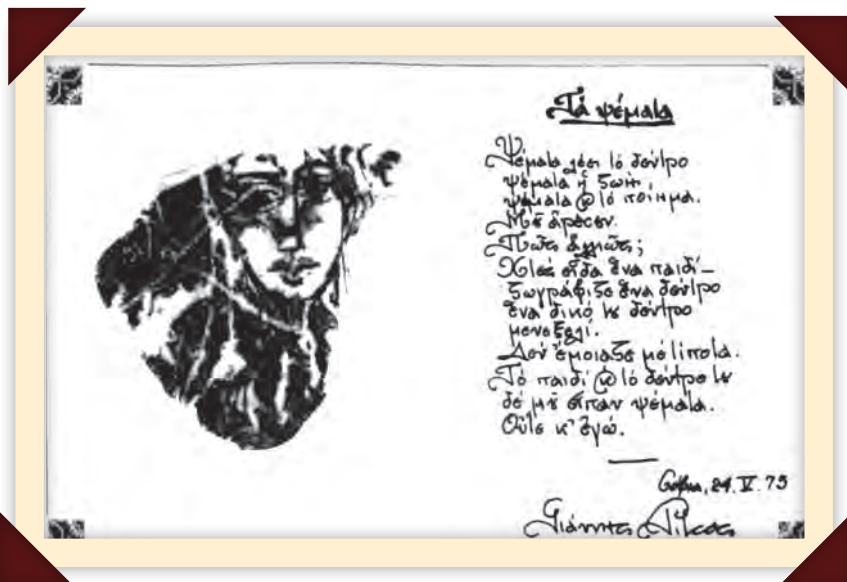 Τὰ ψέματα
Ψέματα λέει τὸ δέντρο
ψέματα ἡ ζωή,
ψέματα καὶ τὸ ποίημα.
Μοῦ ἄρεσεν.
Πῶς ἀλλιῶς;
Χτὲς εἶδα ἕνα παιδί –
ζωγράφιζε ἕνα δέντρο
ἕνα δικό του δέντρο
μενεξελί.
Δὲν ἔμοιαζε μὲ τίποτα.
Τὸ παιδὶ καὶ τὸ δέντρο του
δὲ μοῦ εἶπαν ψέματα.
Οὔτε κ' ἐγώ.
Σόφια, 24.V.75
Γιάννης Ρίτσος